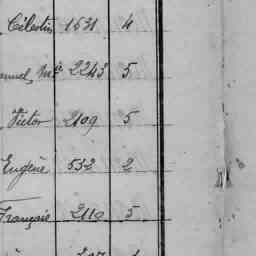 Célestin 1531 4
Mce 2243 5
Victor 2109 5
Eugène 532 2
François 2110 5